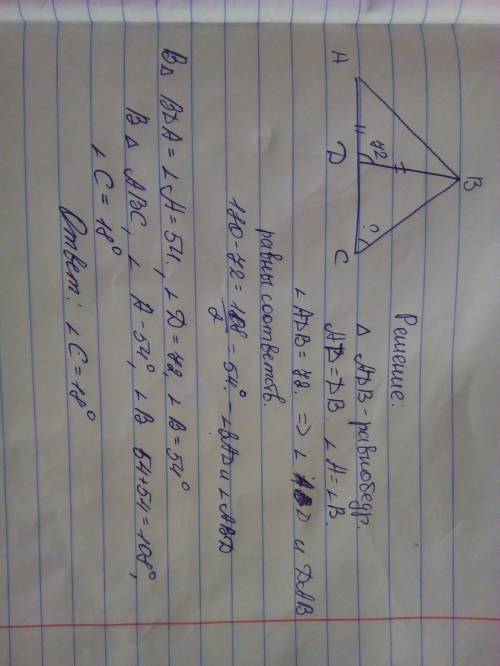 B
A
D
C
72
?
Решение:
△ ADB - равнобедр.
AD = DB ∠A = ∠B.
∠ADB = 72. => ∠ ABD и DAB
равны соответств.
180 - 72 = 108/2 = 54° - ∠BAD и ∠ABD
В △ BDA = ∠A = 54., ∠D = 72, ∠B = 54°
В △ ABC, ∠ A - 54°, ∠B 54+54 = 108°,
∠C = 18°
Ответ: ∠C = 18°